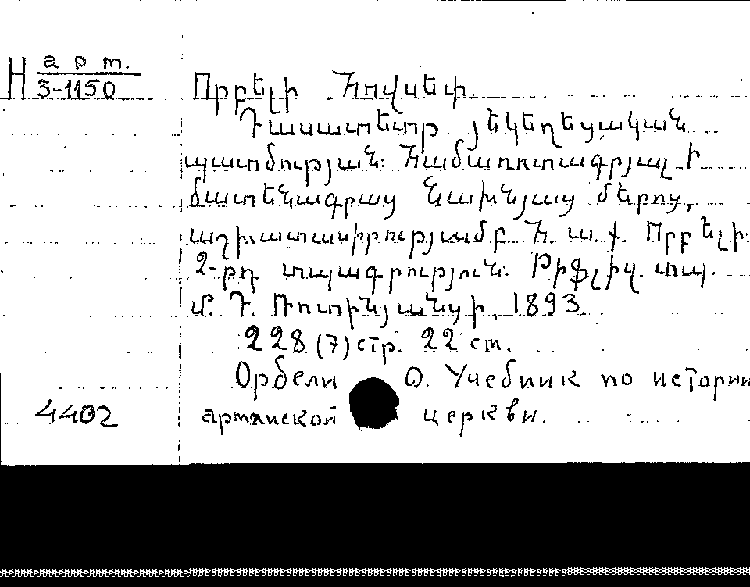 H арт.
3-1150
Որբելի Հովսեփ
Դասատետր յեկեղեցական
պատմության: Համառոտագրյալ ի
մատենագրաց նախնյաց մերոց,
աշխատասիրությամբ Հ. ա. ք. Որբելի
2-րդ տպագրություն. Թիֆլիզ. տպ.
Մ. Դ. Ռոտինյանցի, 1893.
228 (7) стр. 22 см.
Орбели О. Учебник по истории
армянской церкви.
4402